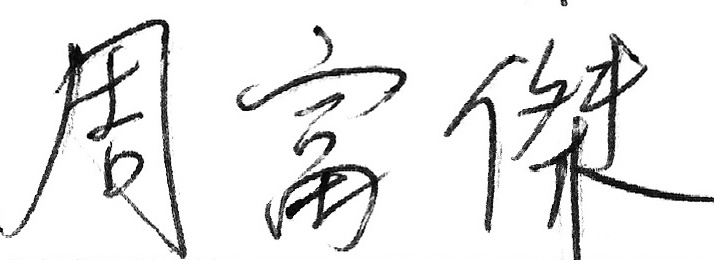 周富傑